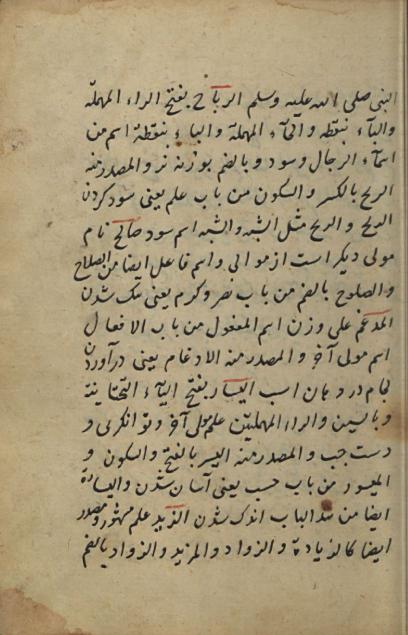 النبى صلى الله عليه وسلم الرباح بفتح الراء المهملة
والباء بنقطه والحاء المهملة والباء بنقطة اسم من
اسماء الرجال وسود وبالضم بوزنه نر والمصدر منه
الربح بالكسر والسكون من باب علم يعنى سود كردن
الربح والربح مثل الشبه والشبه اسم سود صالح نام
مولى ديكر است از موالى واسم فاعل ايضا من الصلاح
والصلوح بالضم من باب نصر وكرم يعنى نيك شدن
المدغم على وزن اسم المفعول من باب الافعال
اسم مولى آخر والمصدر منه الادغام يعنى درآوردن
لجام در دهان اسب اليسار بفتح الياء التحتانية
وبالسين والراء المهملتين علم مولى آخر وتوانكرى و
دست چپ والمصدر منه اليسر بالفتح والسكون و
الميسور من باب حسب يعنى آسان شدن واليسارة
ايضا من هذ الباب اندك شدن الزيد علم مشهور ومصدر
ايضا كالزيادة والزواد والمزيد والزواد بالضم